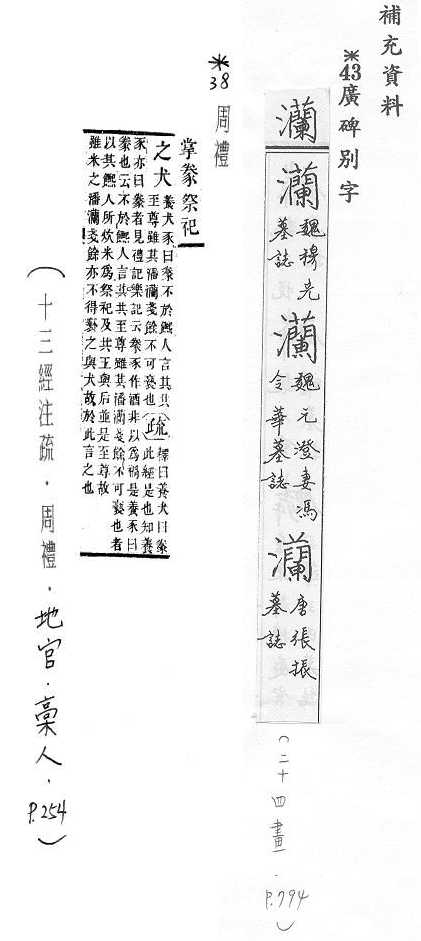 補充資料
*43廣碑別字
瀾
瀾
魏穆亮
墓誌
瀾
魏元澄妻馮
令華墓誌
瀾
唐張振
墓誌
(二十四畫.P.794)
*38 周禮
掌豢祭祀
之犬
養犬豕曰豢不於饎人言其共
至尊雖其潘瀾戔餘不可褻也
疏
釋曰養犬曰豢
此經是也知養
豕亦曰豢者見禮記樂記云豢豕作酒非以為禍是養豕曰
豢也云不於饎人言其共至尊雖其潘瀾戔餘不可褻也者
以其饎人所炊米為祭祀及共王與后並是至尊故
雖米之潘瀾戔餘亦不得褻之與犬故於此言之也
(十三經注疏.周禮.地官.槀人.P.254)